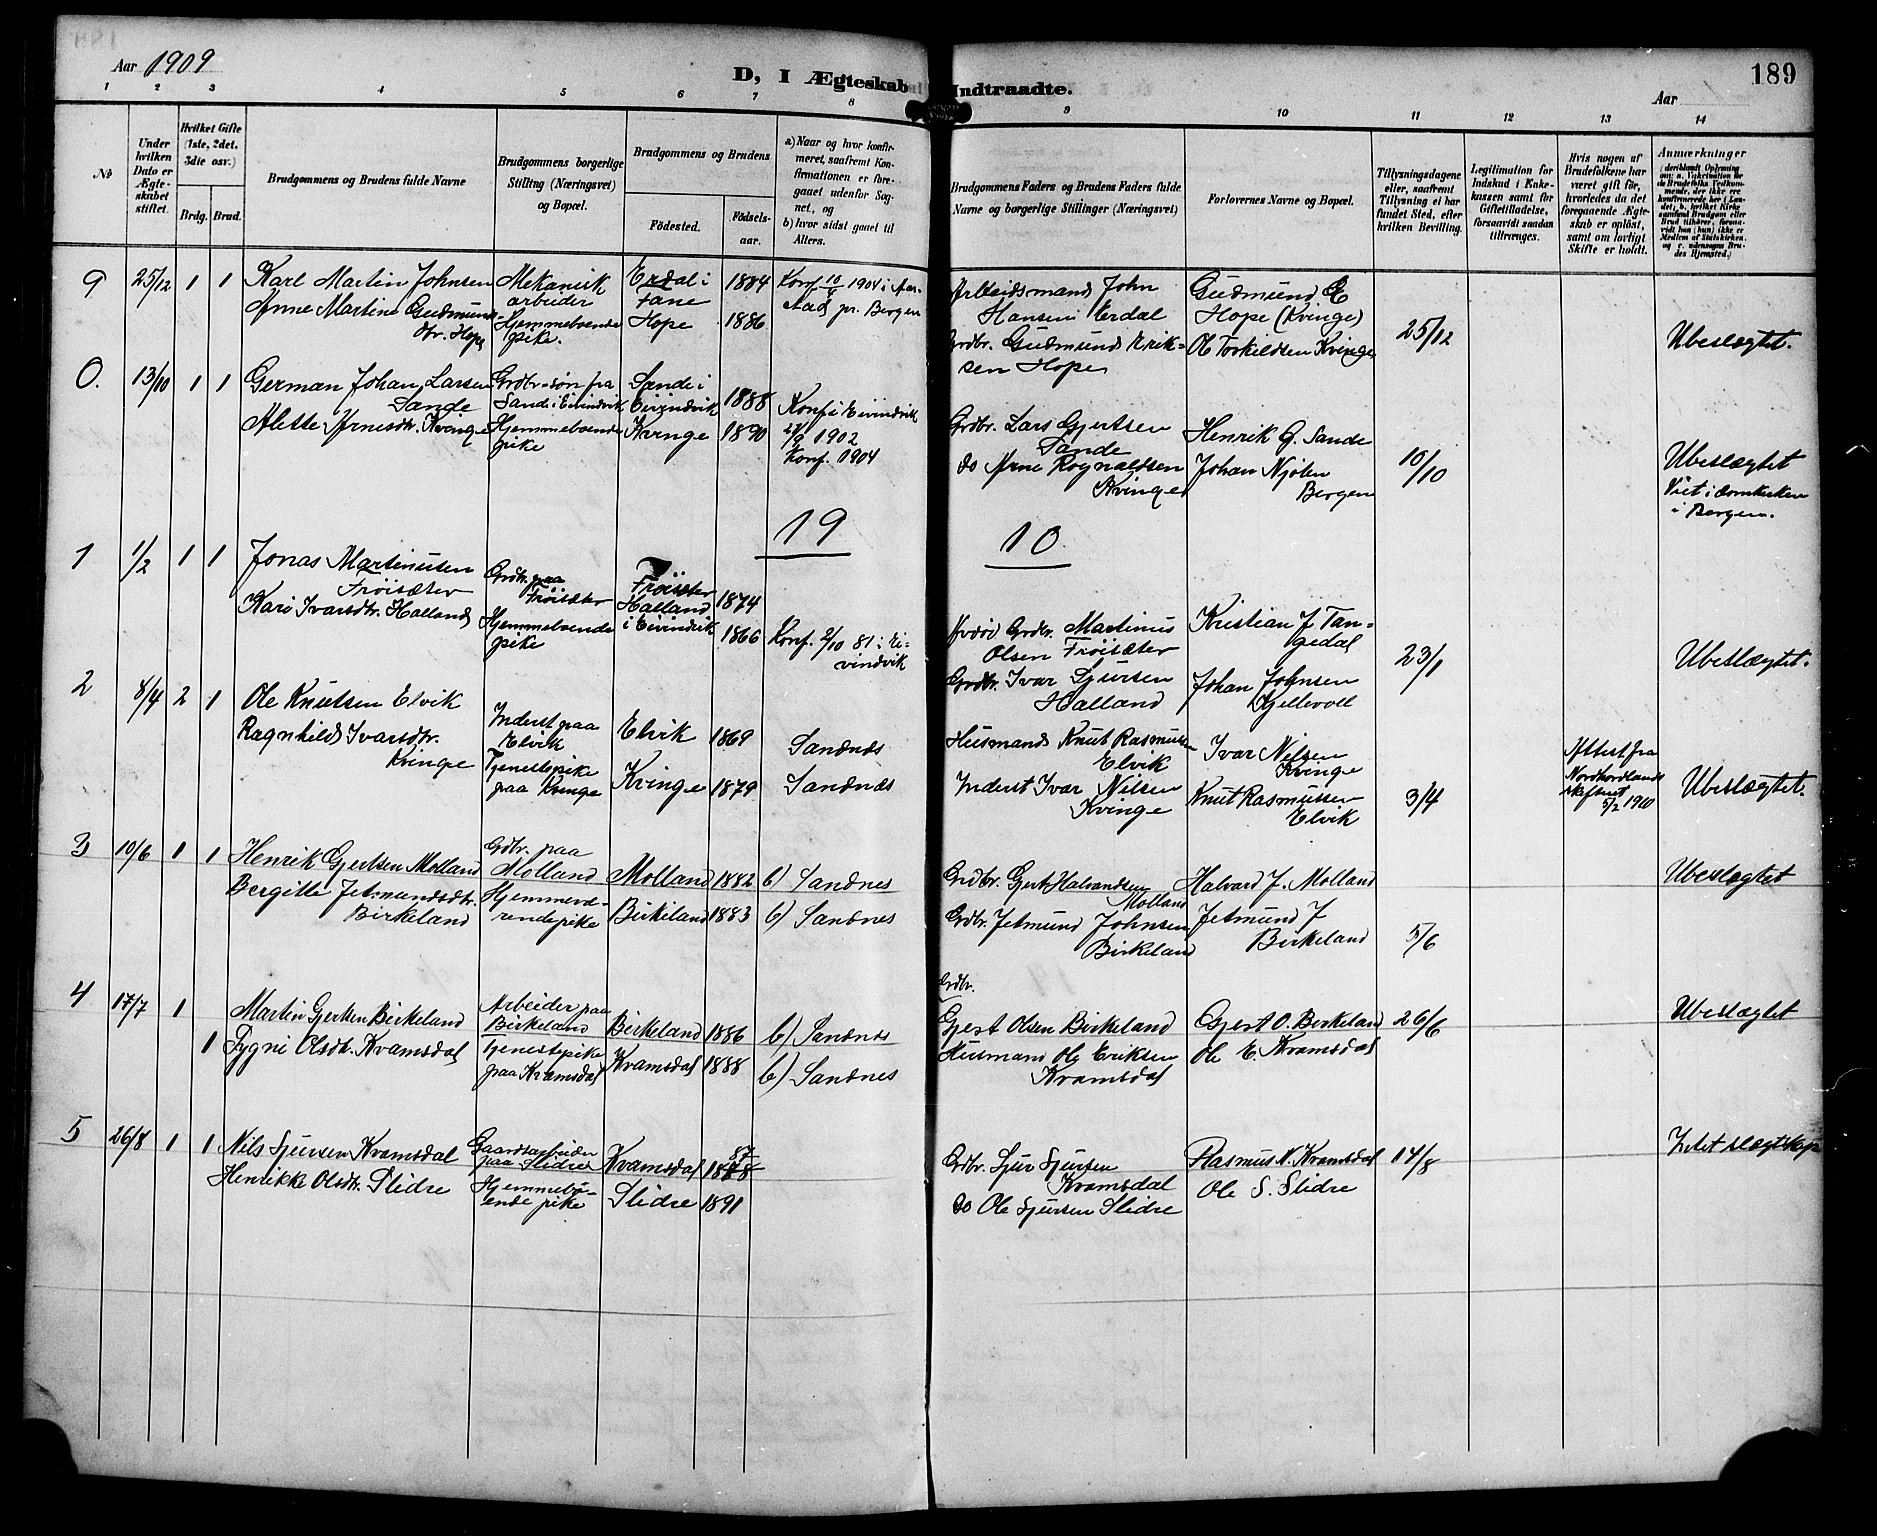 Aar 1909
D, I Ægteskab Indtraadte.
189
Aar
1 2 3 4 5 6 7 8 9 10 11 12 13 14
No
Under hvilken Dato er Ægteskabet stiftet.
Hvilket Gifte (1ste, 2det, 3die osv.)
Brdg. Brud.
Brudgommens og Brudens fulde Navne
Brudgommens borgerlige Stilling (Næringsvei) og Bopæl.
Brudgommens og Brudens
Födested.
Födselsaar.
a) Naar og hvor konfirmeret, saafremt Konfirmationen er foregaaet udenfor Sognet, og
b) hvor sidst gaaet til Alters.
Brudgommens Faders og Brudens Faders fulde Navne og borgerlige Stillinger (Næringsvei)
Forlovernes Navne og Bopæl.
Tillysningsdagene eller, saafremt Tillysning ei har fundet Sted, efter hvilken Bevilling.
Legitimation for Indskud i Enkekassen samt for Giftetilladelse, forsaavidt saadan tiltrænges.
Hvis nogen af Brudefolkene har været gift för, hvorledes da det foregaaende Ægteskab er oplöst, samt om lovligt Skifte er holdt.
Anmærkninger
9 25/12 1 1
Karl Martin Johnsen
Anne Martine Gudmundsdtr. Hope
Mekanisk arbeider
Hjemmeboende pike.
Erdal i Fane 1884
Hope 1886
Konf. 10/4 1904 i Aarstad pr. Bergen
Arbeidsmand John Hansen Erdal
Grdbr. Gudmund Eriksen Hope
Gudmund E Hope (Kvinge)
Ole Torkildsen Kvinge
25/12
Ubeslægtet.
0. 13/10 1 1
German Johan Larsen Sande
Alette Arnesdtr. Kvinge
Grdbr-søn fra Sande i Eivindvik
Hjemmeboende pike
Sande i Eivindvik 1888
Kvinge 1890
Konf i Eivindvik
1902
Konf. 1904
Grdbr. Lars Gjertsen Sande
do Arne Rognaldsen Kvinge
Henrik G. Sande
Johan Njølen Bergen
10/10
Ubeslægtet
Viet i Domkirken i Bergen.
19 10.
1 1/2 1 1
Jonas Martinusen Frøisæter
Kari Ivarsdtr. Halland
Grdbr. paa Frøisæter
Hjemmeboende pike
Frøisæter 1874
Halland i Eivindvik 1866
Konf. 2/10 81 i Eivindvik
Avdød Grdbr. Martinus Olsen Frøisæter
Grdbr. Ivar Sjursen Halland
Kristian J Tangedal
Johan Johnsen Kjellevoll
23/1
Ubeslægtet.
2 8/4 2 1
Ole Knutsen Elvik
Ragnhild Ivarsdtr. Kvinge
Inderst paa Elvik
Tjenestepike paa Kvinge
Elvik 1869
Kvinge 1879
Sandnes
Sandnes
Husmand Knut Rasmussen Elvik
Inderst Ivar Nilsen Kvinge
Ivar Nilsen Kvinge
Knut Rasmussen Elvik
3/4
Attest fra Nordhordland skifteret 5/2 1910
Ubeslægtet.
3 10/6 1 1
Henrik Gjertsen Molland
Bergitte Jetmundsdtr. Birkeland
Grdbr. paa Molland
Hjemmeværende pike
Molland 1882
Birkeland 1883
b) Sandnes
b) Sandnes
Grdbr. Gjert Halvardsen Molland
Grdbr. Jetmund Johnsen Birkeland
Halvard J. Molland
Jetmund J Birkeland
5/6
Ubeslægtet
4 17/7 1 1
Martin Gjertsen Birkeland
Sygni Olsdtr. Kvamsdal
Arbeider paa Birkeland
Tjenestepike paa Kvamsdal
Birkeland 1886
Kvamsdal 1888
b) Sandnes
b) Sandnes
Grdbr.
Gjert Olsen Birkeland
Husmand Ole Eriksen Kvamsdal
Gjert O. Birkeland
Ole E. Kvamsdal
26/6
Ubeslægtet
5 26/8 1 1
Nils Sjursen Kvamsdal
Henrikke Olsdtr. Slidre
Gaardsarbeider paa Slidre
Hjemmeboende pike
Kvamsdal 1888 87
Slidre 1891
Grdbr. Sjur Sjursen Kvamsdal
do Ole Sjursen Slidre
Rasmus N. Kvamsdal
Ole S. Slidre
14/8
Intet slægtskap